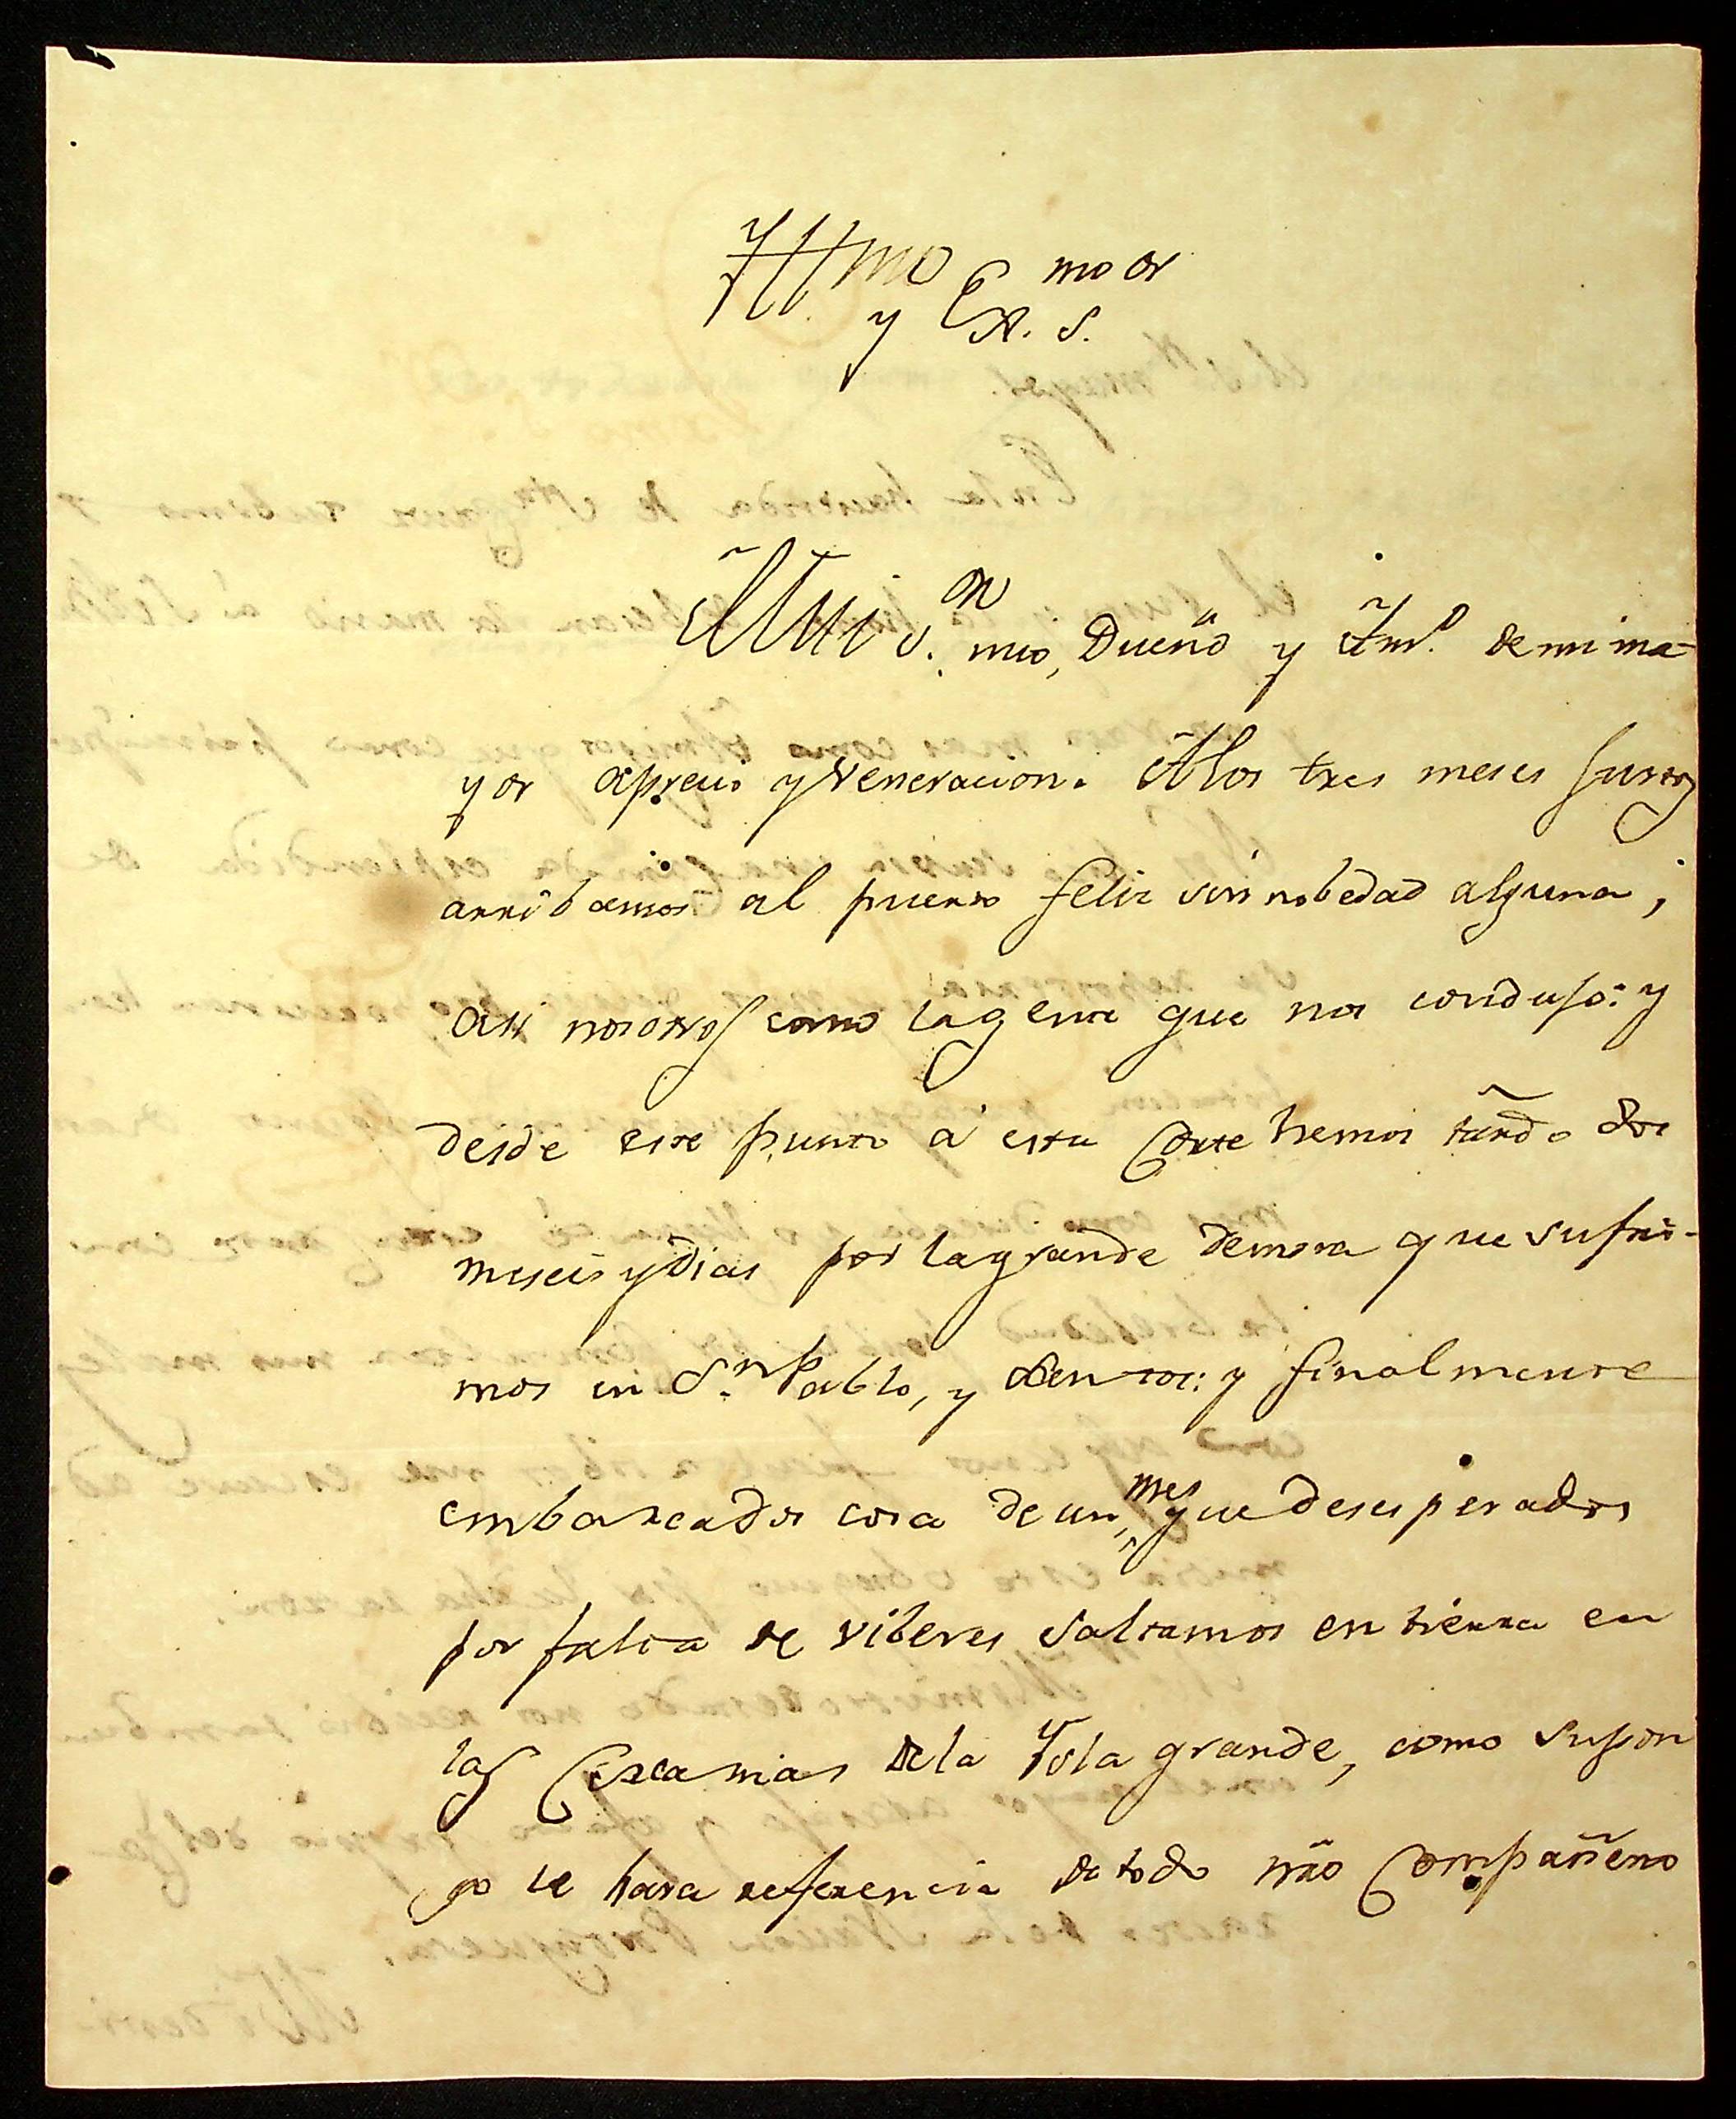 Yll.mo y Ex.mo S.or
Mui S.or mio, Dueño y Am.o de mi ma-
yor aprecio y Veneracion. A los tres meses justos
arribamos al puerto feliz sin nobedad alguna,
asi nosotros como la gente que nos condujo: y
desde este punto á esta Corte hemos tardã.do dos
meses y dias por la grande demora que sufri-
mos en S.n Pablo, y Santos: y finalmente
embarcados cosa de un mes que desesperados
por falta de viberes saltamos en tierra en
las Cercanias de la Ysla grande, como supon
go le hara referencia de todo nr̃o Compañero